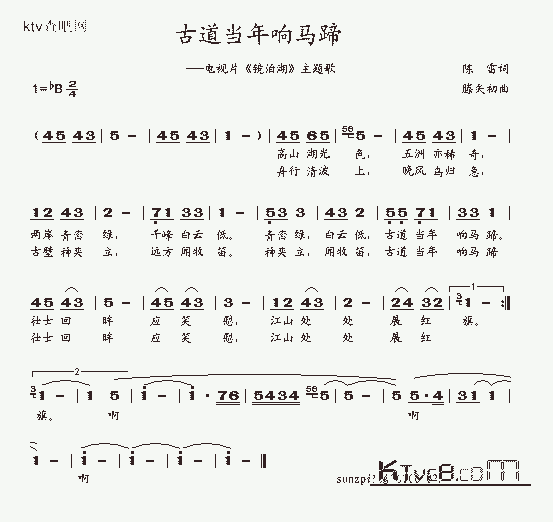 古道当年响马蹄
——电视片《镜泊湖》主题歌
陈 雷词
1=♭B 2/4
滕矢初曲
( 45 43 | 5 - | 45 43 | 1 - ) | 45 65 | 56 5 - | 45 43 | 1 - |
高山 湖光 色, 五洲 亦稀 奇,
舟行 清波 上, 晚风 鸟归 急,
12 43 | 2 - | 71 33 | 1 - | 53 3 | 43 2 | 55 71 | 33 1 |
两岸 青峦 绿, 千峰 白云 低。 青峦 绿, 白云 低, 古道 当年 响马 蹄。
古壁 神夹 立, 远方 闻牧 笛。 神夹 立, 闻牧 笛, 古道 当年 响马 蹄。
45 43 | 5 - | 45 43 | 3 - | 12 43 | 2 - | 24 32 | 1. 3 1 - :||
壮士 回 眸 应 笑 慰, 江山 处 处 展 红 旗。
壮士 回 眸 应 笑 慰, 江山 处 处 展 红
2. 3 1 - | 1 5 | 1 - | 1 · 76 | 5434 | 56 5 - | 5 - | 5 5·4 | 31 1 |
旗。 啊 啊
1 - | 1 - | 1 - | 1 - ||
啊
KTvc8.com